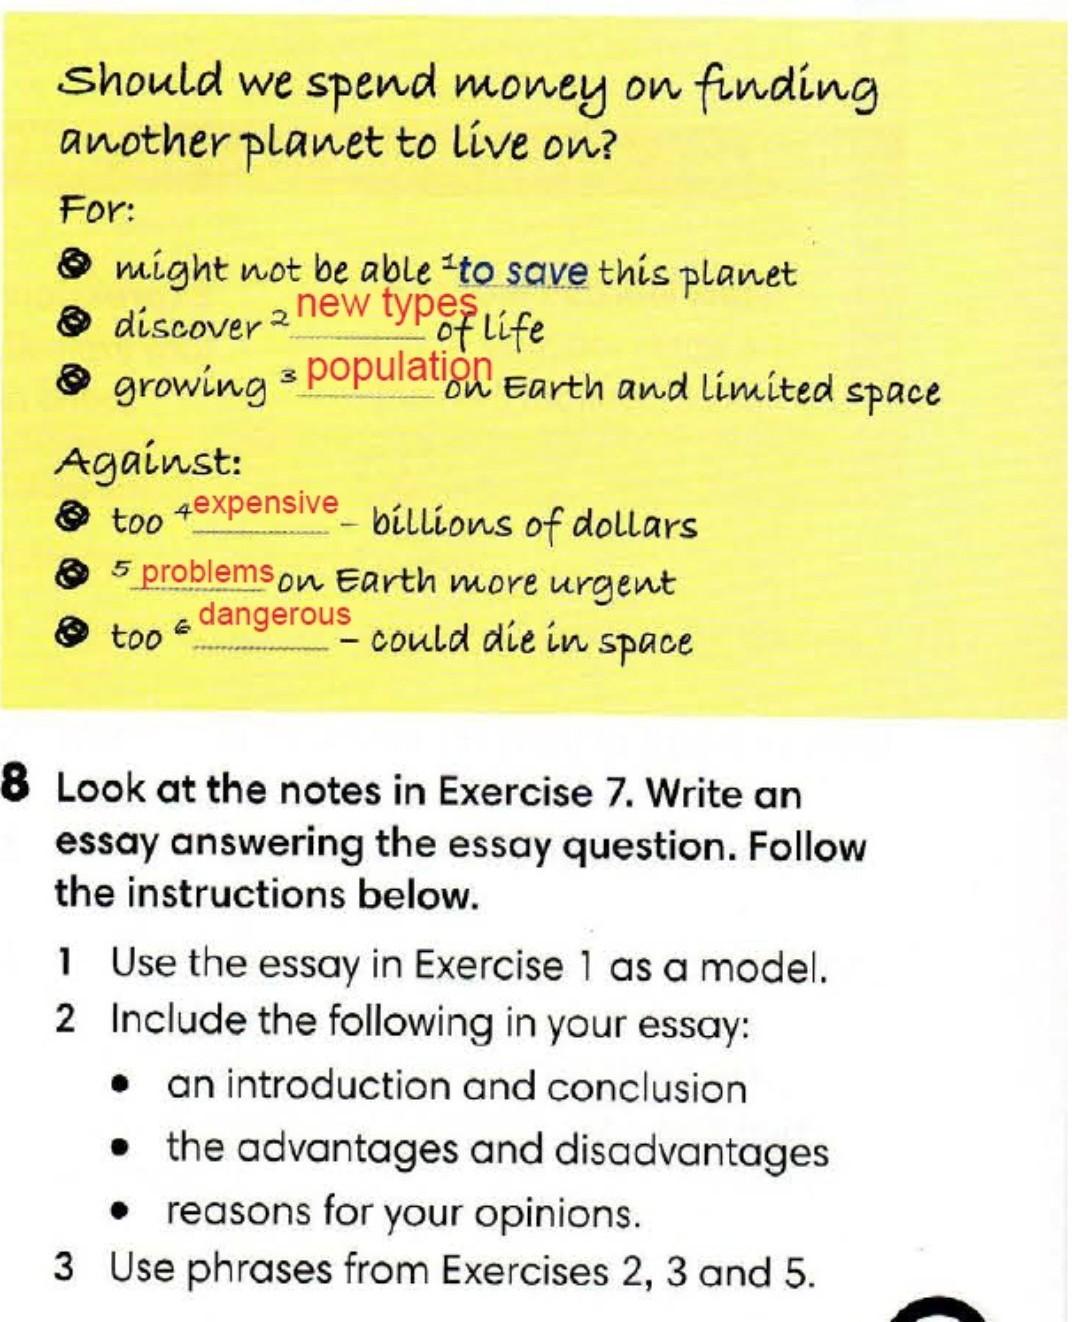 Should we spend money on finding
another planet to live on?
For:
might not be able 1 to save this planet
discover 2 new types of life
growing 3 population on Earth and limited space
Against:
too 4 expensive – billions of dollars
5 problems on Earth more urgent
too 6 dangerous – could die in space
8 Look at the notes in Exercise 7. Write an
essay answering the essay question. Follow
the instructions below.
1 Use the essay in Exercise 1 as a model.
2 Include the following in your essay:
• an introduction and conclusion
• the advantages and disadvantages
• reasons for your opinions.
3 Use phrases from Exercises 2, 3 and 5.